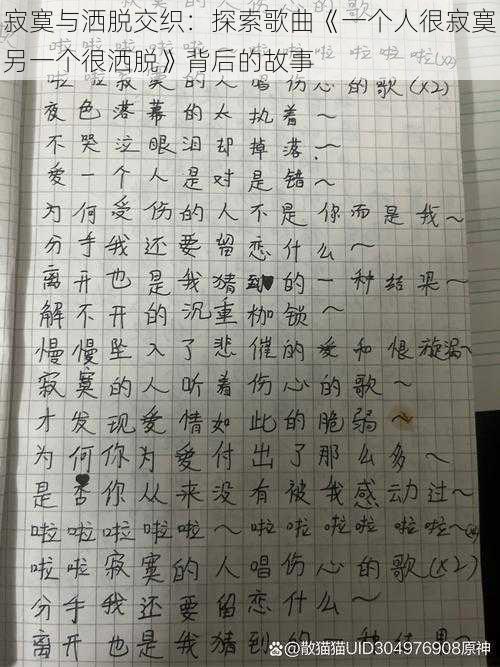 寂寞与洒脱交织：探索歌曲《一个人很寂寞
另一个很洒脱》背后的故事
啦啦寂寞的人唱伤心的歌(x2)
夜色落幕的太执着～
不哭泣眼泪却掉落～
爱一个人是对是错～
为何受伤的人不是你而是我～
分手我还要留恋什么～
离开也是我猜到的一种结果～
解不开的沉重枷锁～
慢慢坠入了悲催的爱和恨旋涡～
寂寞的人听着伤心的歌～
才发现爱情如此的脆弱～
为何你为爱付出了那么多～
是否你从来没有被我感动过～
啦啦啦啦啦啦～啦啦啦啦啦啦～
啦啦寂寞的人唱伤心的歌(x2)
分手我还要留恋什么～
离开也是我猜到的一种结果～
@散猫猫UID304976908原神